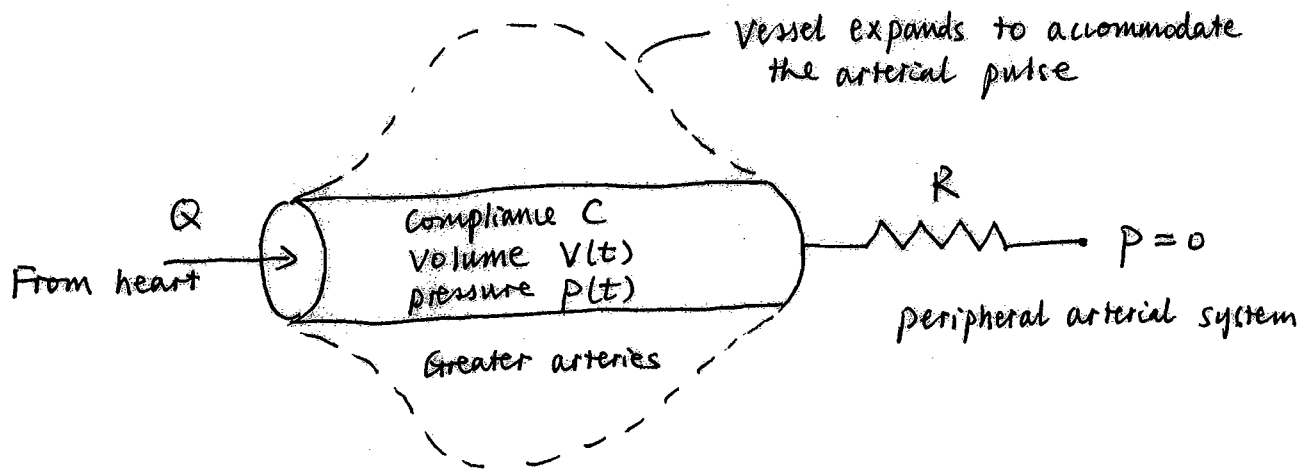 Vessel expands to accommodate
the arterial pulse
Q
From heart
Compliance C
Volume V(t)
pressure P(t)
Greater arteries
R
P = 0
peripheral arterial system